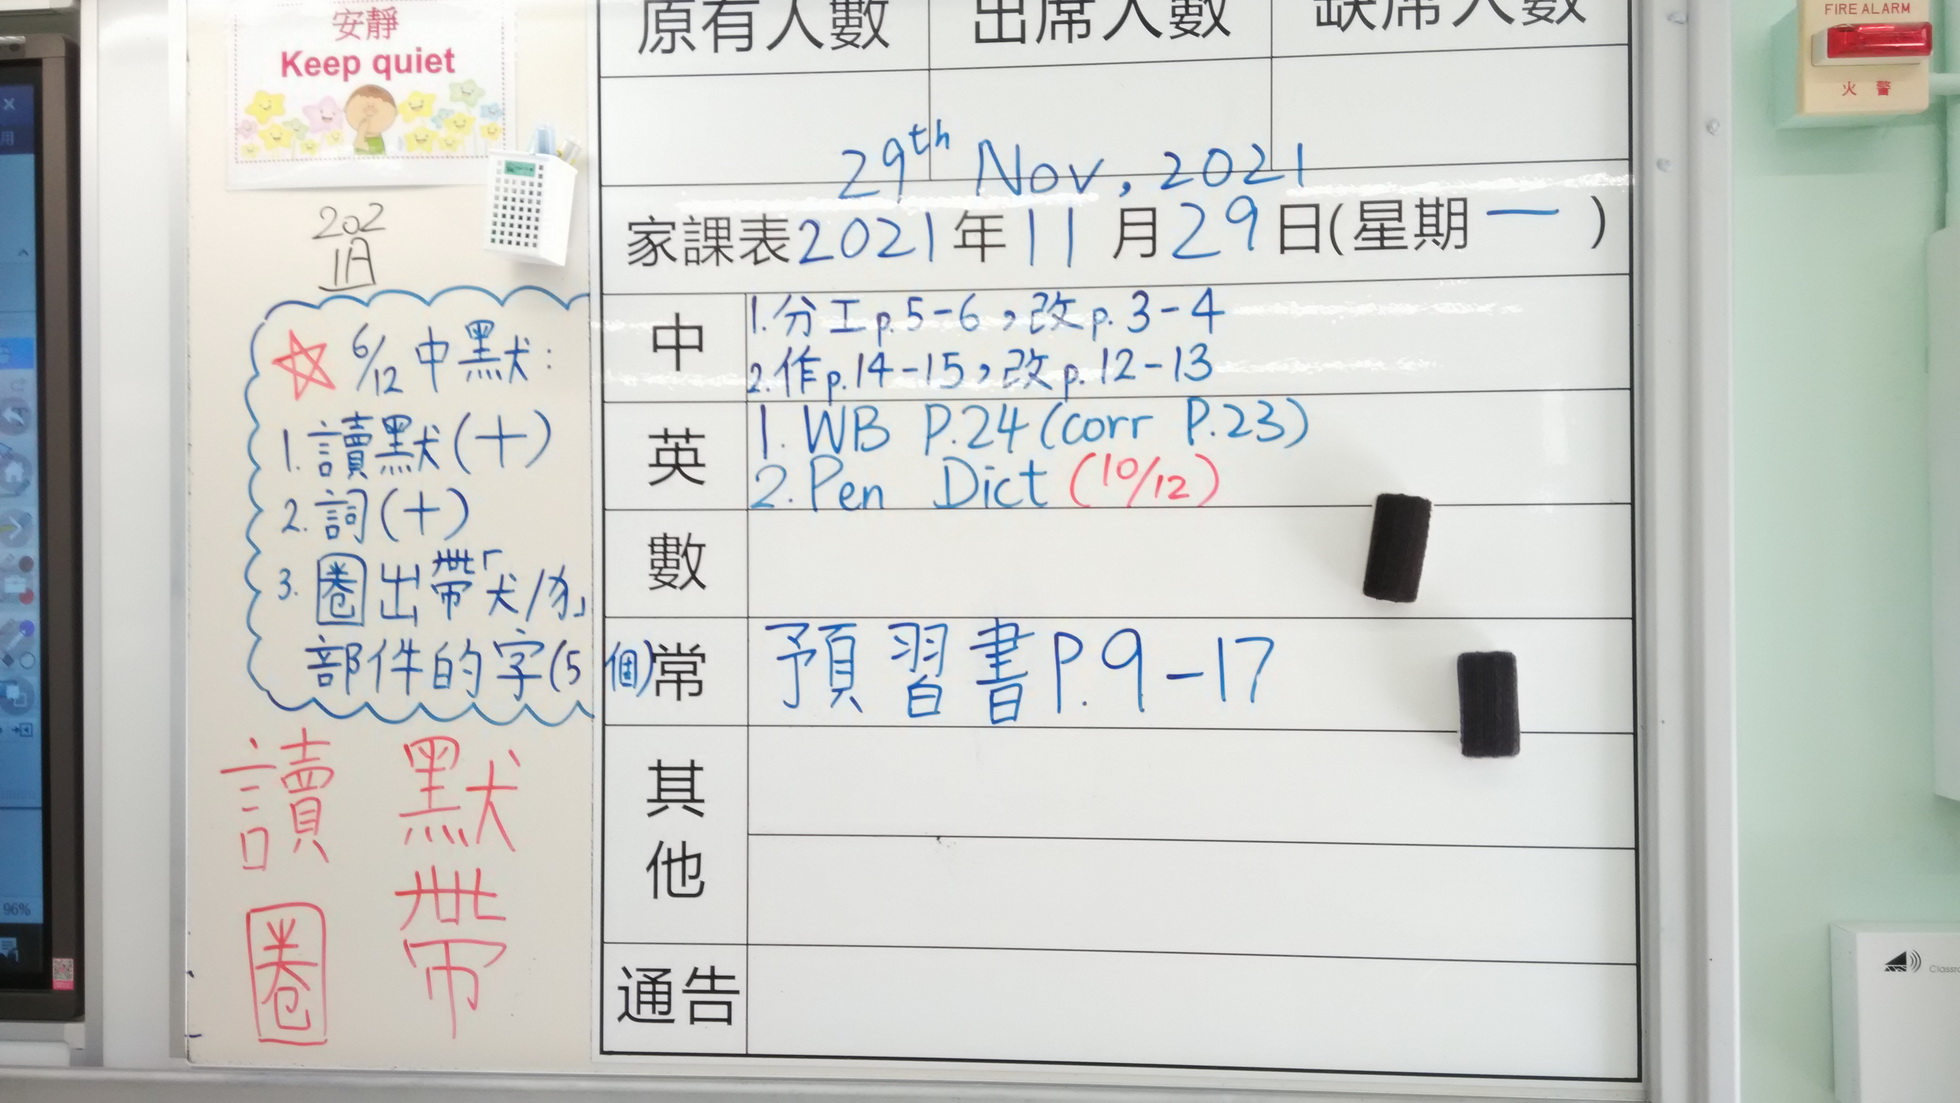 安靜
Keep quiet
202
1A
☆ 6/12 中默:
1. 讀默(十)
2. 詞(十)
3. 圈出帶「犬/犭」
部件的字(5個)
讀 默
圈 帶
原有人數 出席人數 缺席人數
29th Nov, 2021
家課表2021年11月29日(星期一)
中
1. 分工p.5-6,改p.3-4
2. 作p.14-15,改p.12-13
英
1. WB P.24(corr P.23)
2. Pen Dict (10/12)
數
常 預習書P.9-17
其他
通告
FIRE ALARM
火警
96%